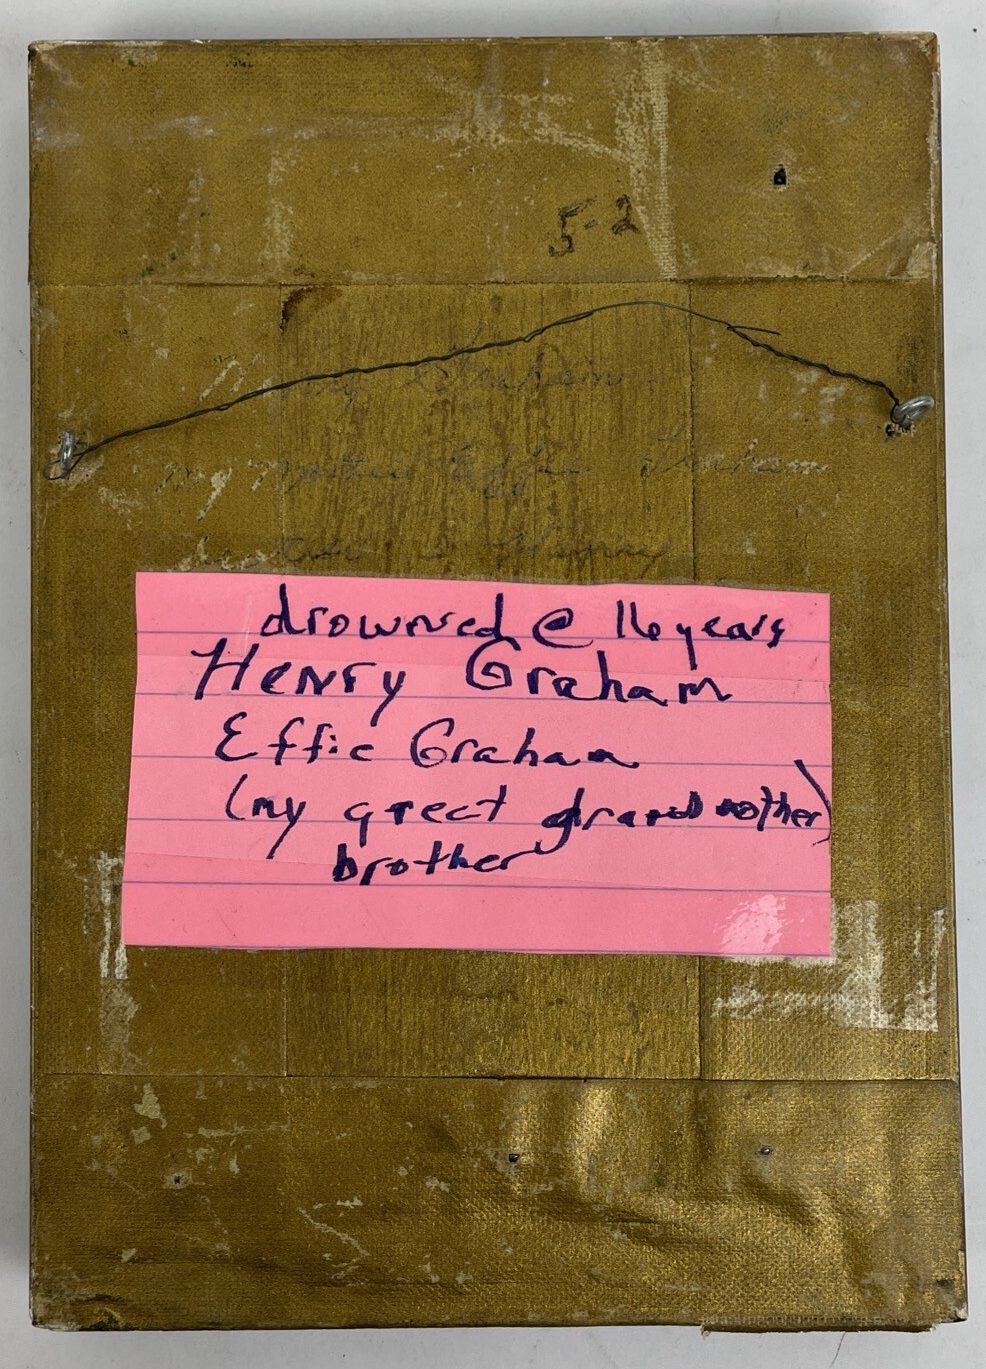 5-2
Graham
My Mother Effie Graham
Henry
drowned @ 16 years
Henry Graham
Effie Graham
(my great grandmother)
brother